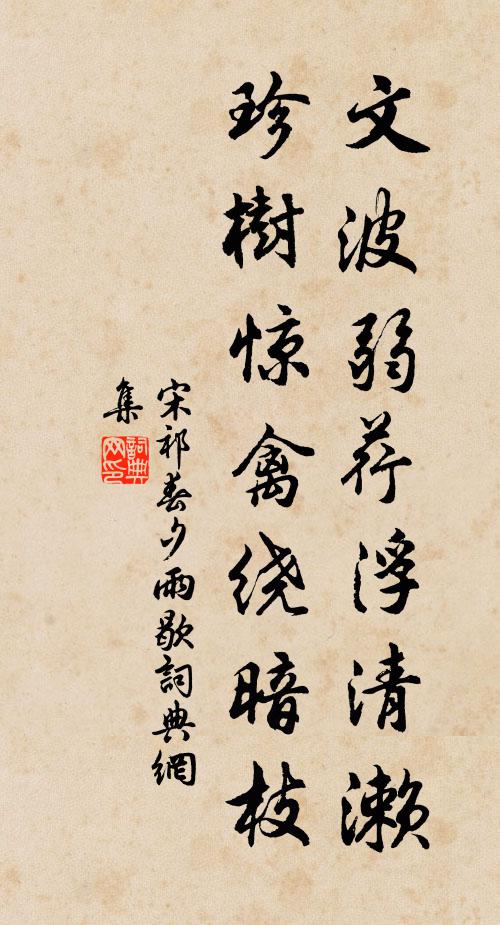 文波弱荇浮清濑
珍樹惊禽绕暗枝
宋祁春夕雨歇詞典網
集
詞典
网印